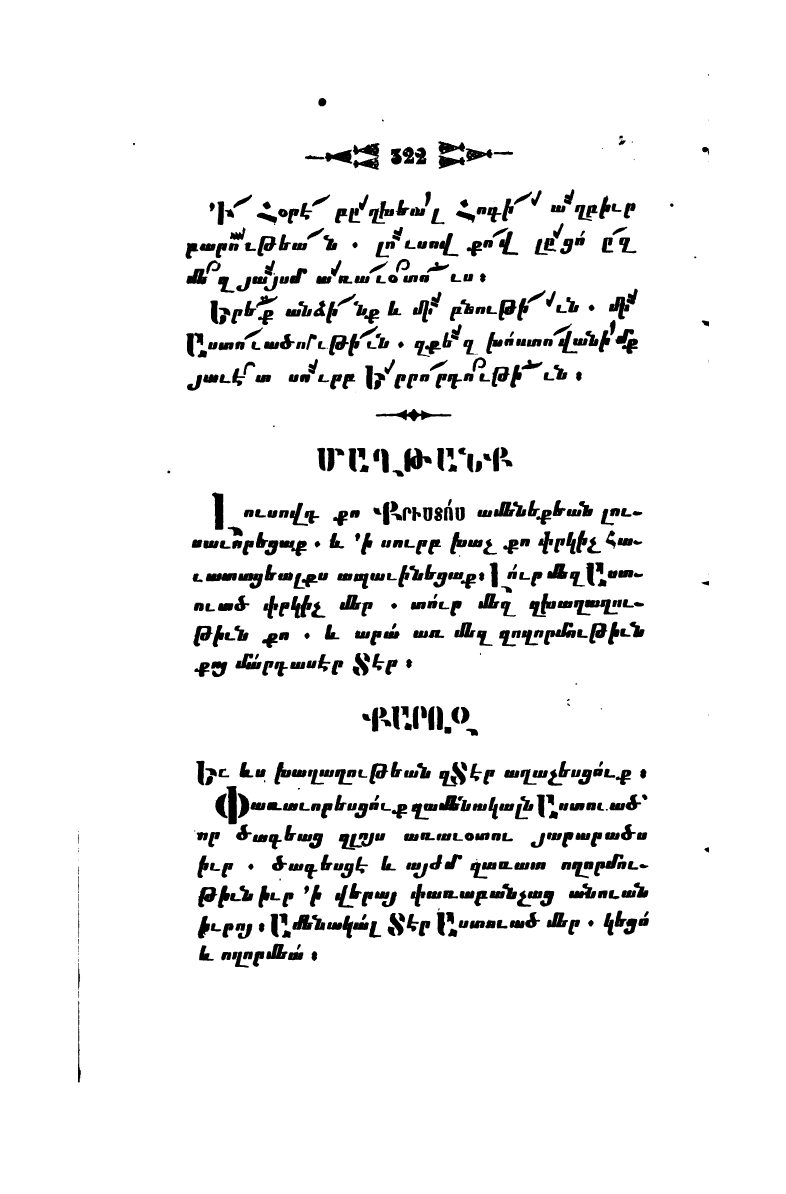 322
՚Ի Հօրէ բըղխեալ Հոգի աղբիւր
բարութեան . լուսով քով լըցո ըզ
մեզ յայսմ առաւօտուս ։
Երեք անձինք և մի բնութիւն . մի
Աստուածութիւն . զքեզ խոստովանիմք
յաւէտ սուրբ Երրորդութիւն ։
ՄԱՂԹԱՆՔ
Լուսովդ քո Քրիստոս ամենեքեան լու-
սաւորեցաք . և ՚ի սուրբ խաչ քո փրկիչ հա-
ւատացեալքս ապաւինեցաք ։ Լուր մեզ Աստ-
ուած փրկիչ մեր . տուր մեզ զխաղաղու-
թիւն քո . և արա առ մեզ զողորմութիւն
քոյ մարդասէր Տէր ։
ՔԱՐՈԶ
Եւ ևս խաղաղութեան զՏէր աղաչեսցուք ։
Փառաւորեսցուք զամենակալն Աստուած՝
որ ծագեաց զլոյս առաւօտու յարարածս
իւր . ծագեսցէ և այժմ զառատ ողորմու-
թիւն իւր ՚ի վերայ փառաբանչաց անուան
իւրոյ ։ Ամենակալ Տէր Աստուած մեր . կեցո
և ողորմեա ։